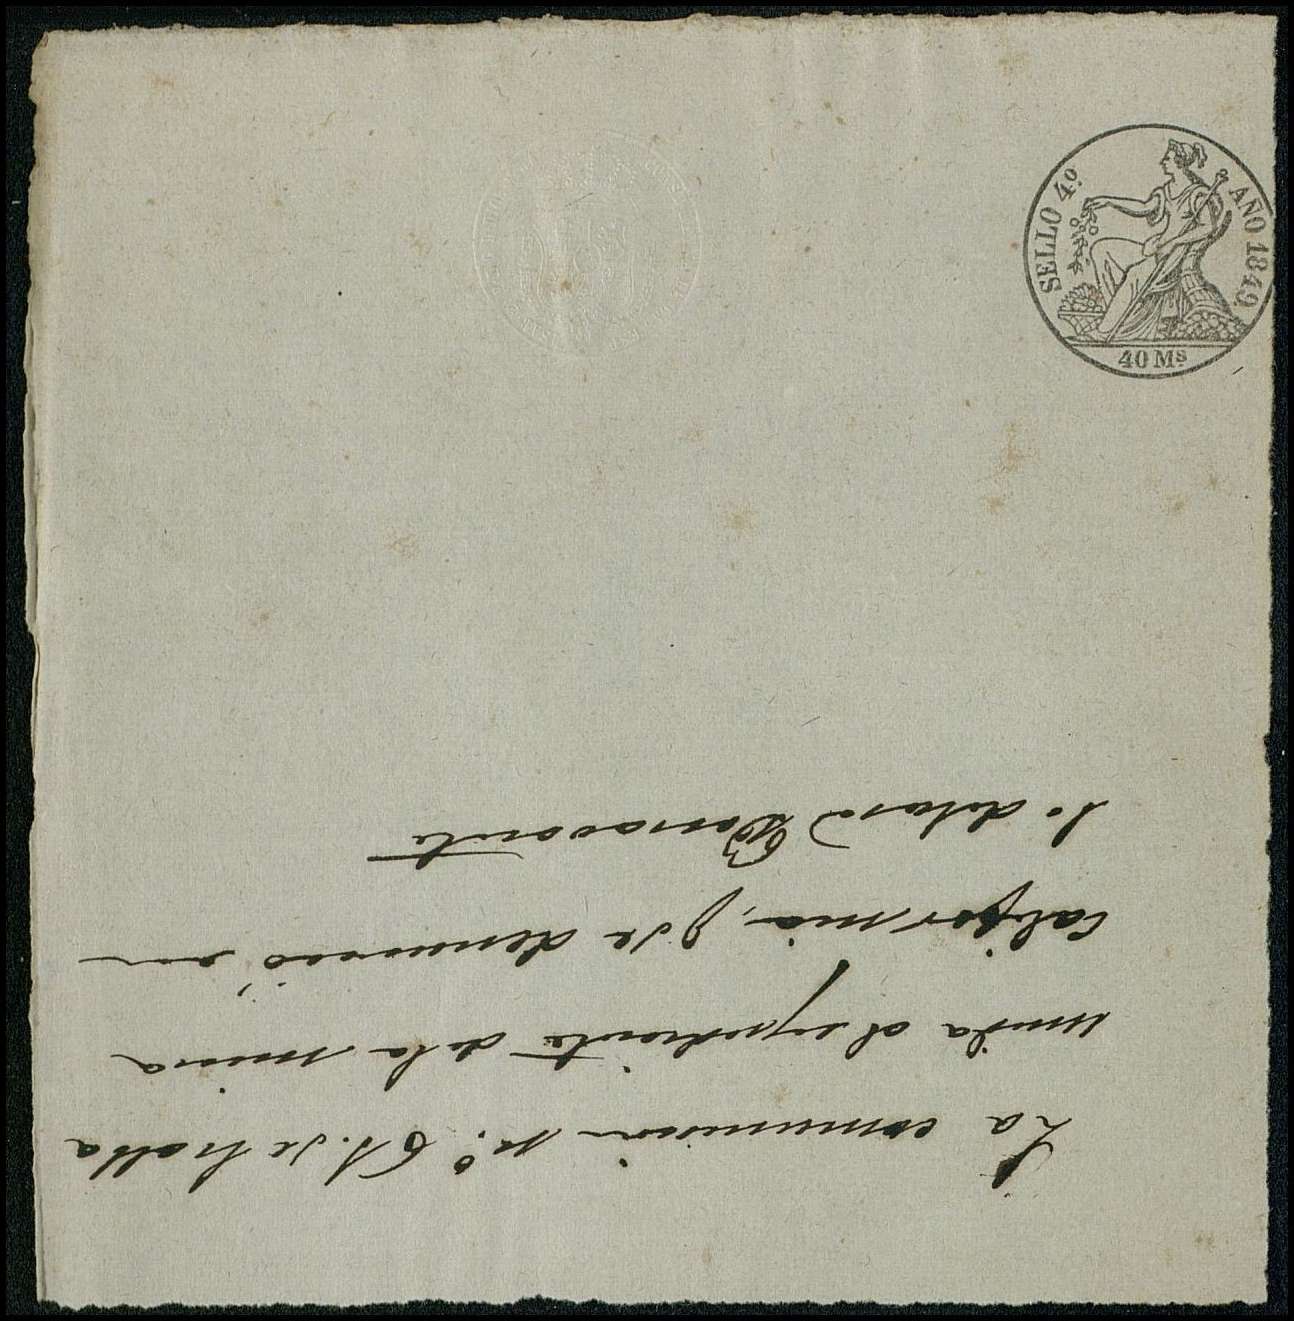 SELLO 4º AÑO 1849.
40 Ms
La comunicacion nº. 61. se halla
unida al expediente de la mina
California, q. se denunció en
lo de las